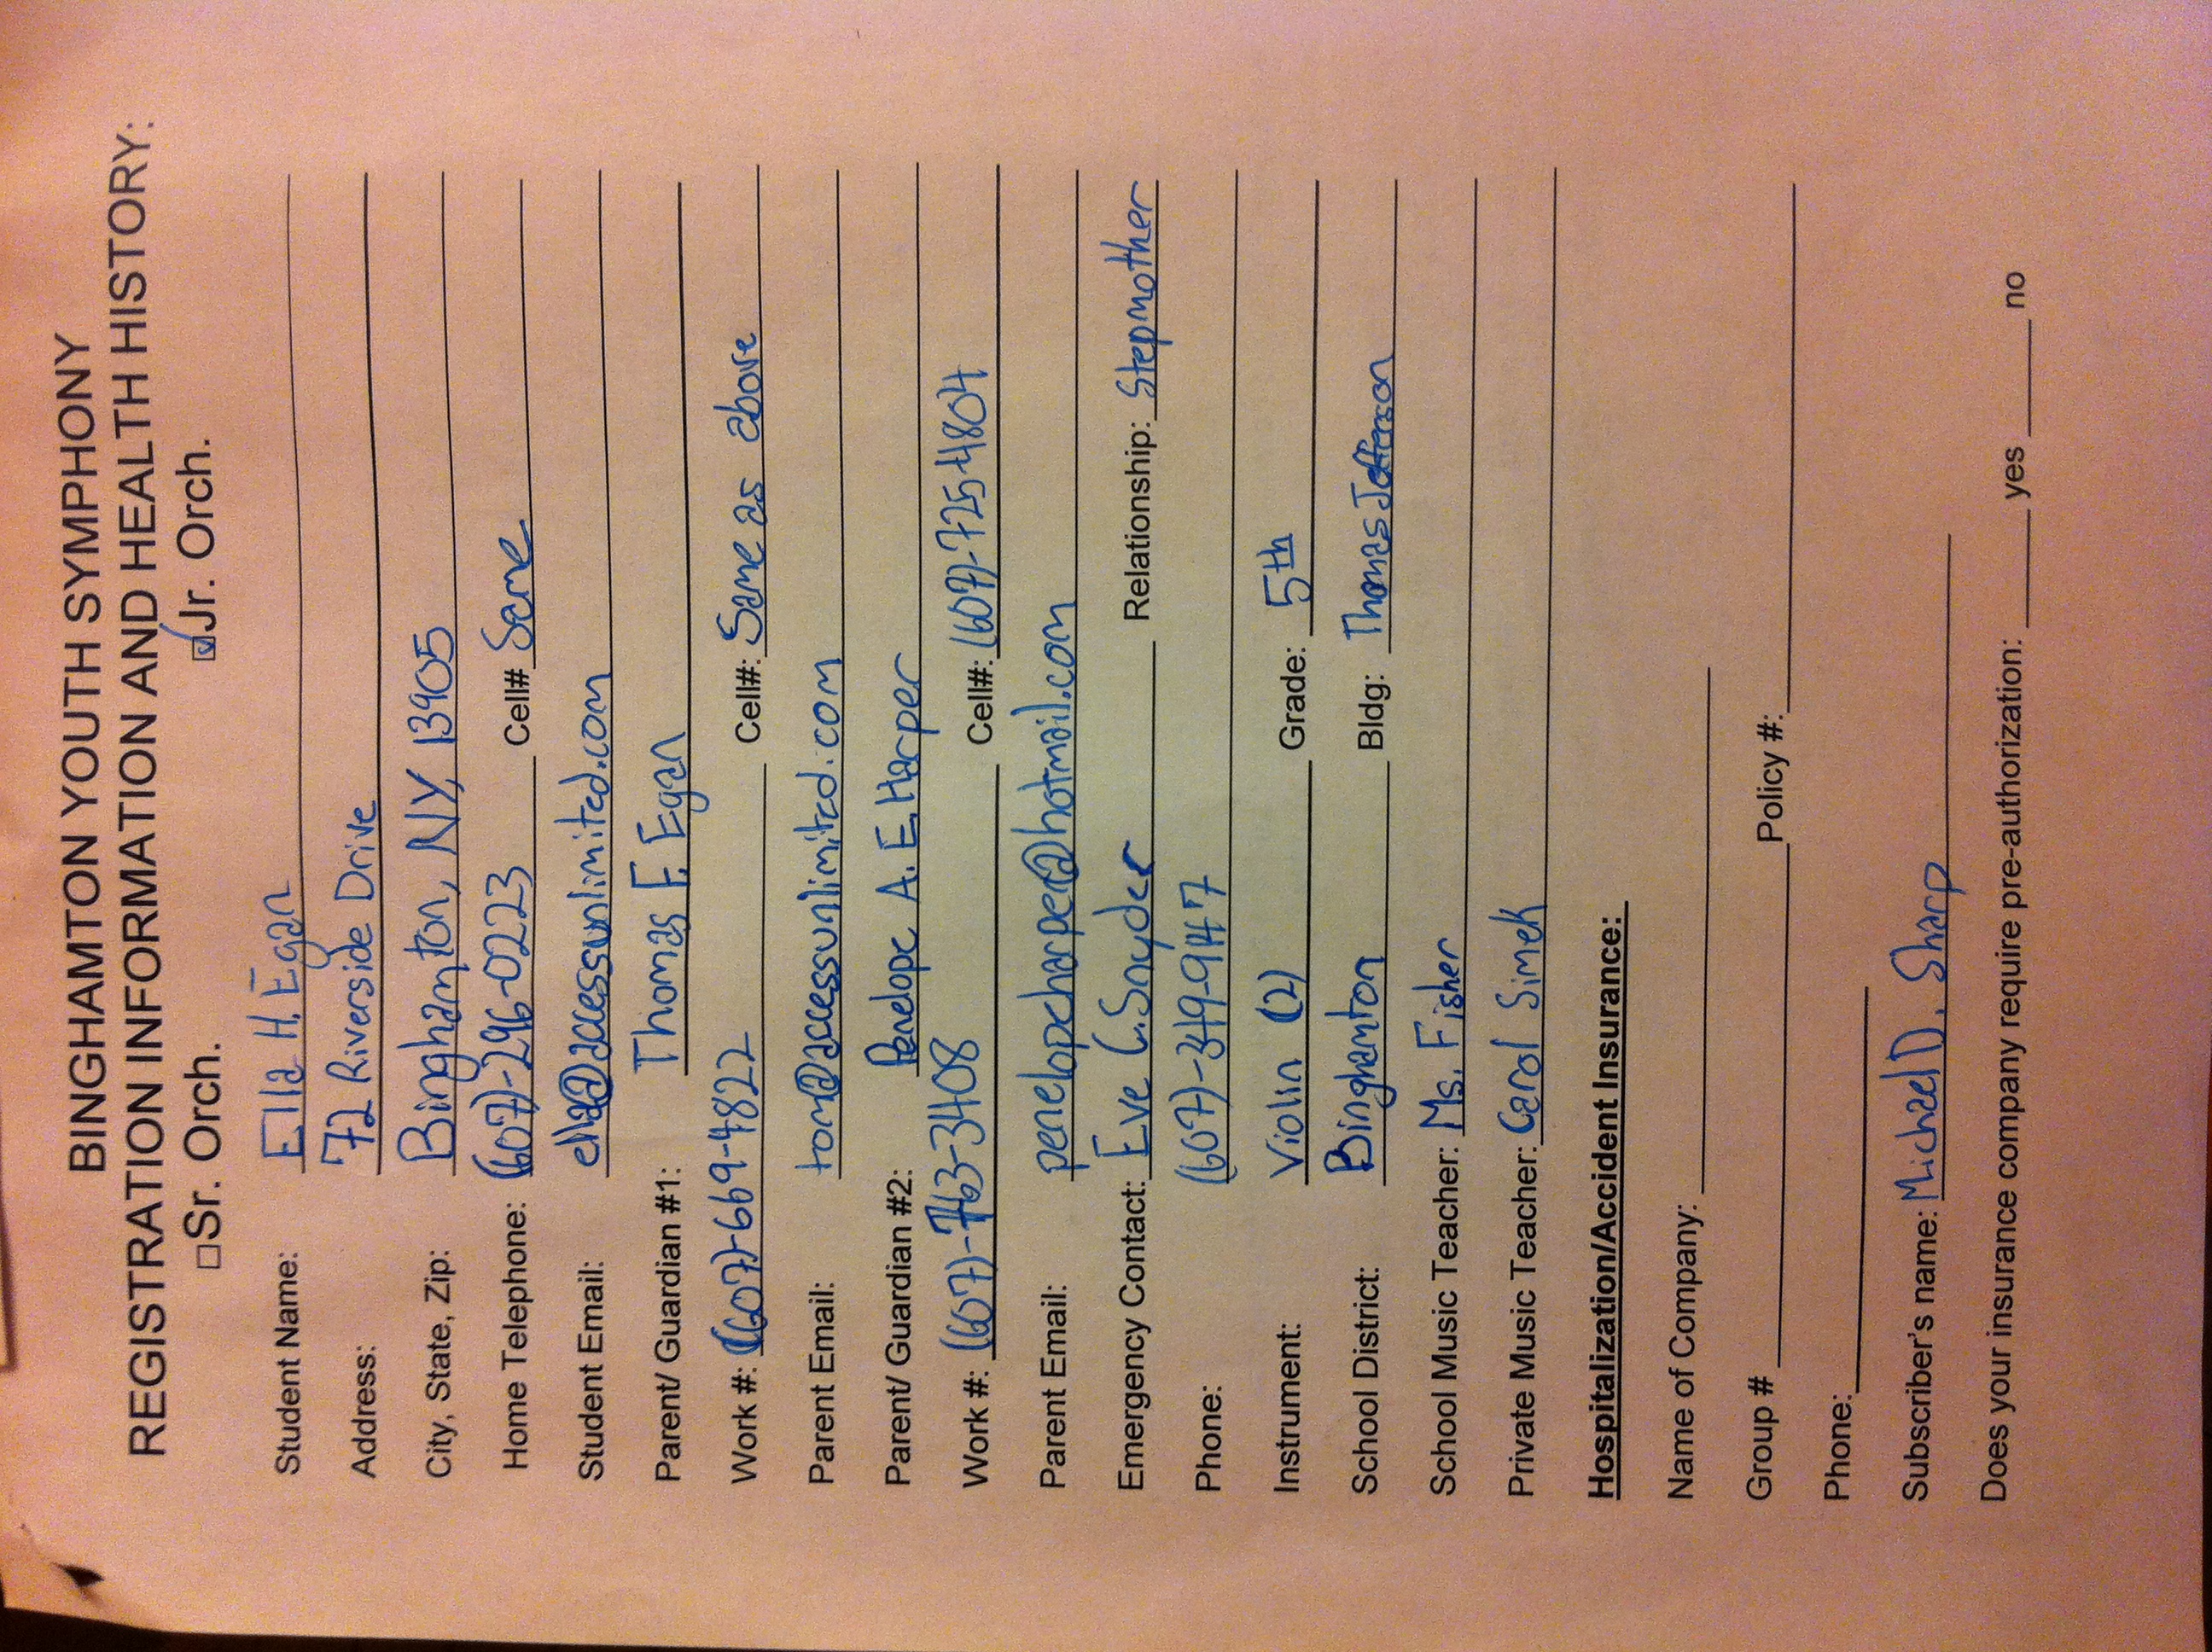 BINGHAMTON YOUTH SYMPHONY
REGISTRATION INFORMATION AND HEALTH HISTORY:
□Sr. Orch. ☑Jr. Orch.
Student Name: Ella H. Egan
Address: 72 Riverside Drive
City, State, Zip: Binghamton, NY, 13905
Home Telephone: (607)-296-0223 Cell# Same
Student Email: ella@accessunlimited.com
Parent/ Guardian #1: Thomas F. Egan
Work #: (607)-669-4822 Cell#: Same as above
Parent Email: tom@accessunlimited.com
Parent/ Guardian #2: Penelope A. E. Harper
Work #: (607)-763-3408 Cell#: (607)-725-4804
Parent Email: penelopeharper@hotmail.com
Emergency Contact: Eve C. Snyder Relationship: Stepmother
Phone: (607)-349-9447
Instrument: Violin (2) Grade: 5th
School District: Binghamton Bldg: Thomas Jefferson
School Music Teacher: Ms. Fisher
Private Music Teacher: Carol Simek
Hospitalization/Accident Insurance:
Name of Company:
Group # Policy #:
Phone:
Subscriber's name: Michael D. Sharp
Does your insurance company require pre-authorization: yes no